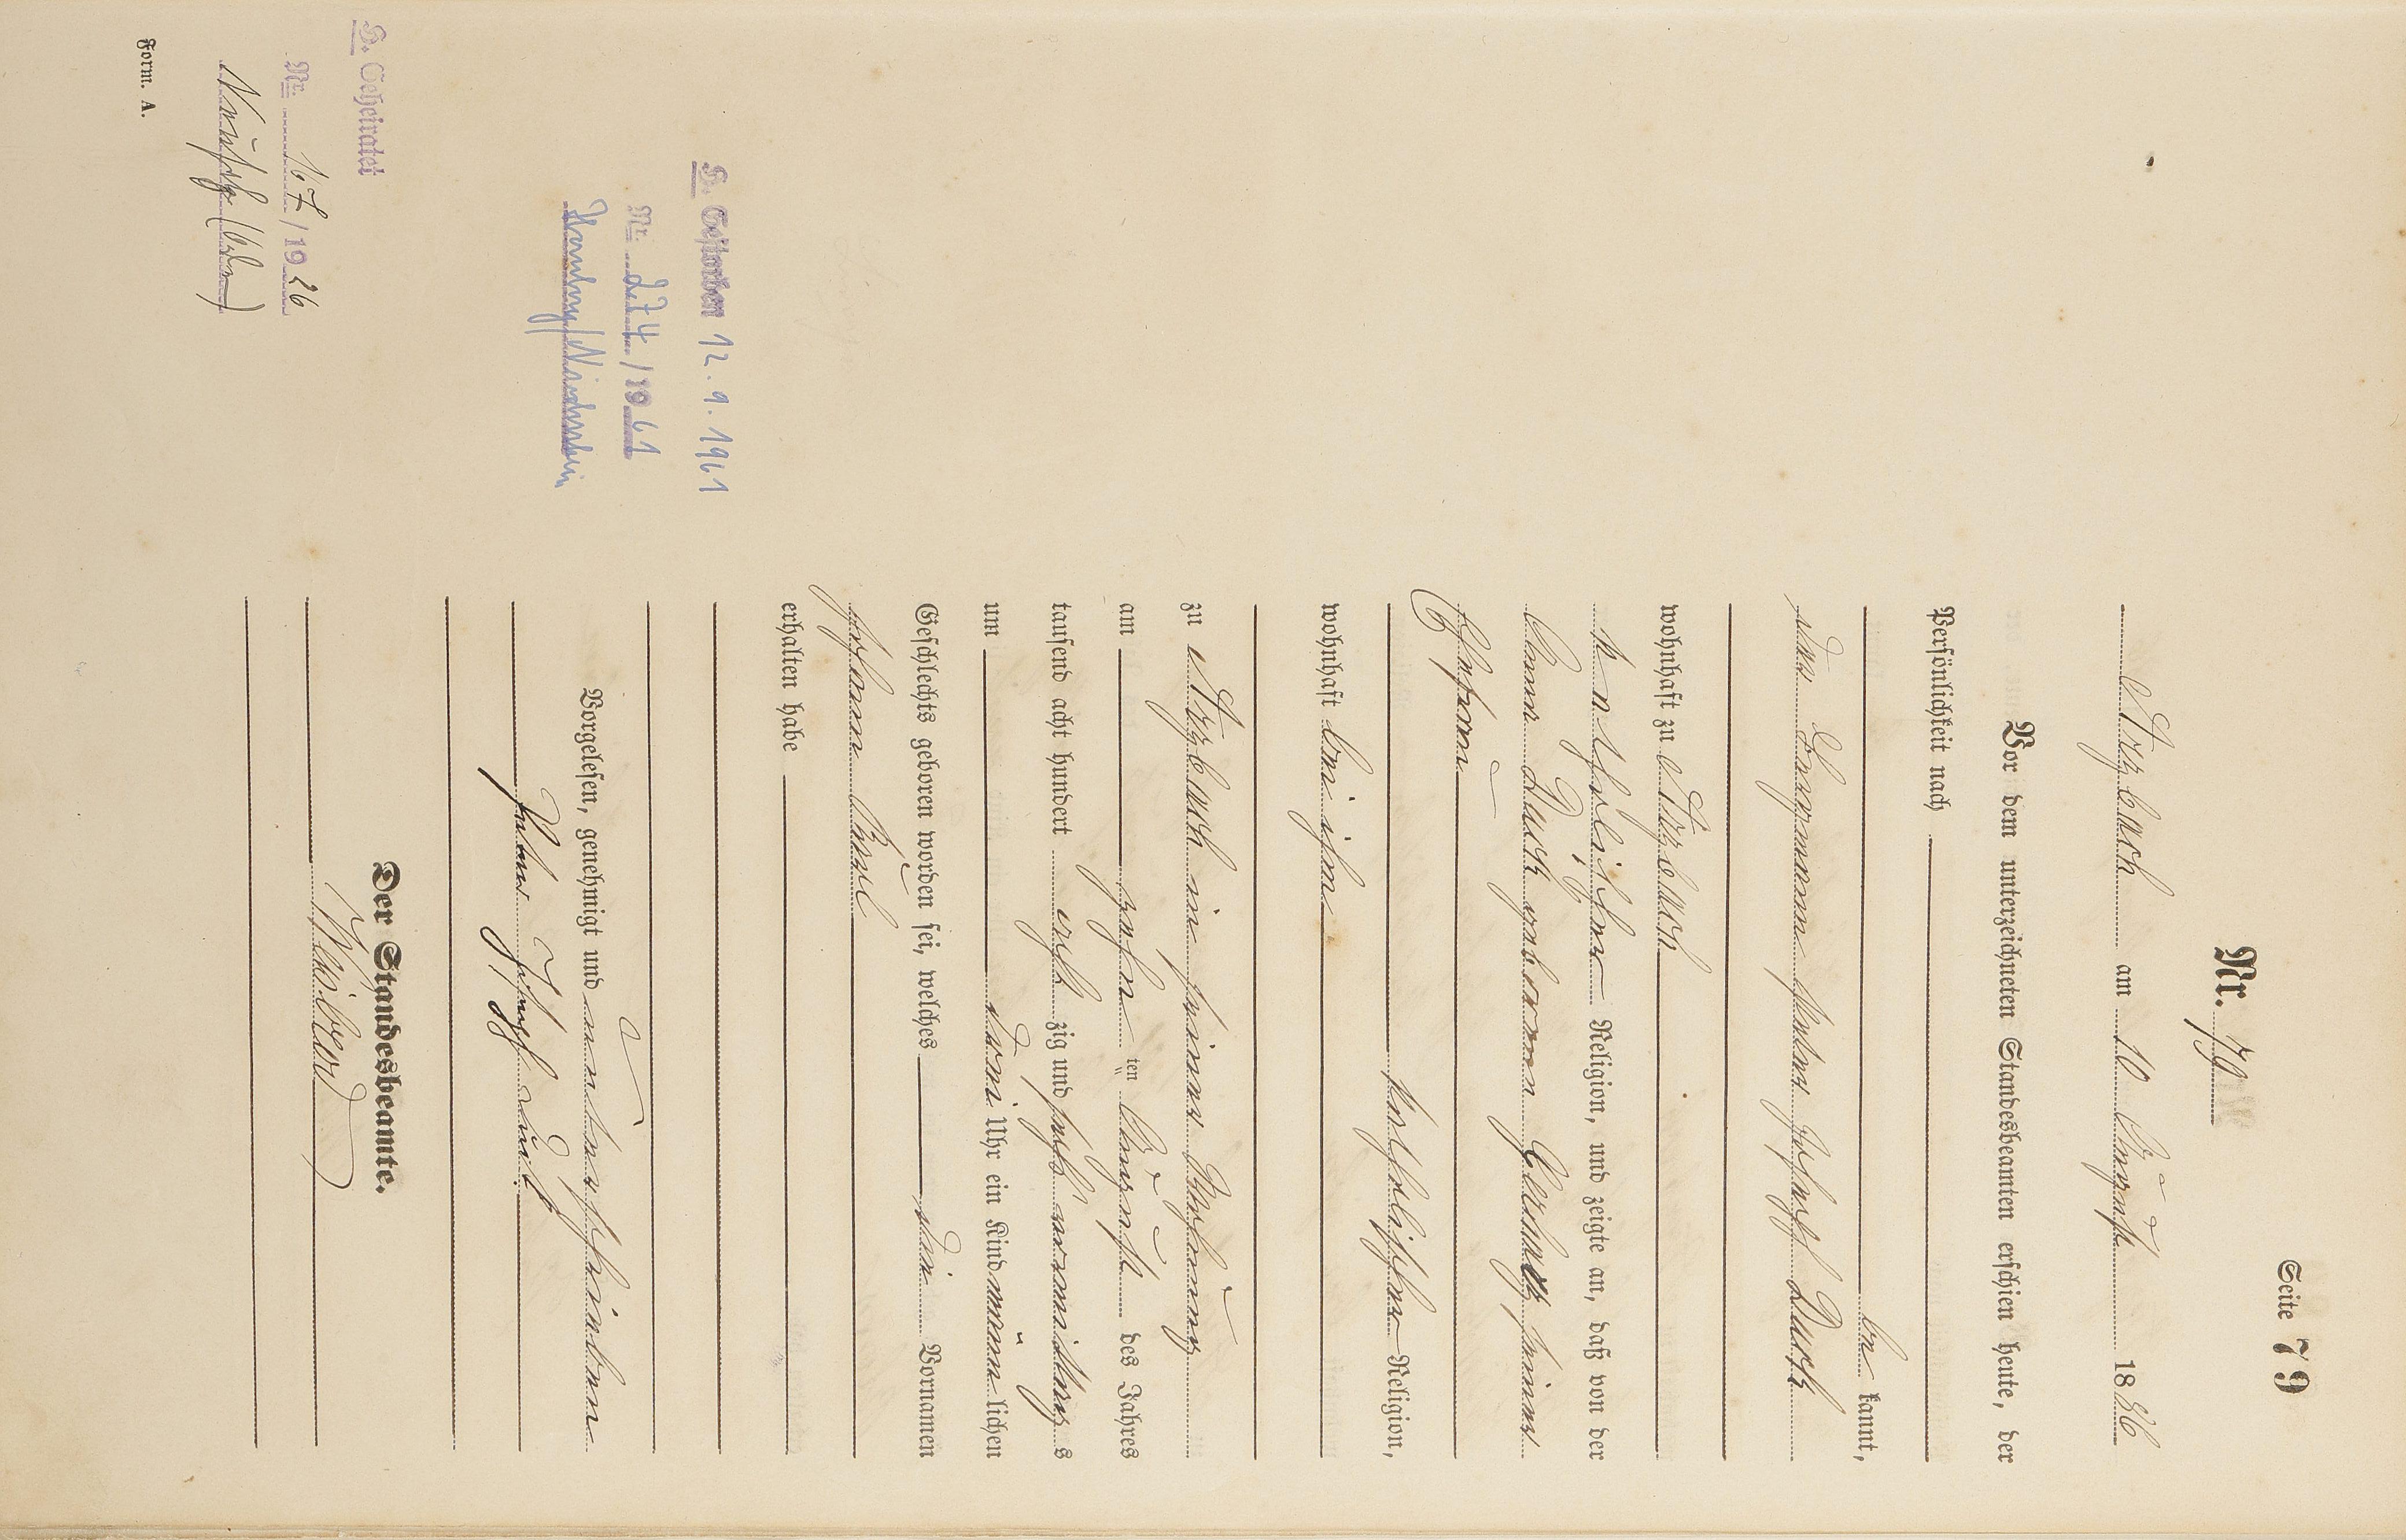 Seite 79
Nr. 79
Arzbach am 10 August 1886
Vor dem unterzeichneten Standesbeamten erschien heute, der
Persönlichkeit nach
be kannt,
der Bergmann Peter Josef Duck
wohnhaft zu Arzbach
katholischer Religion, und zeigte an, daß von der
Duck geborenen seiner
Ehefrau
katholischer Religion,
wohnhaft bei ihm
zu Arzbach in seiner Wohnung
am zehn ten August des Jahres
tausend acht hundert acht zig und sechs vormittags
um drei Uhr ein Kind männ lichen
Geschlechts geboren worden sei, welches die Vornamen
Johann Karl
erhalten habe
Vorgelesen, genehmigt und unterschrieben
Peter Josef Duck
Der Standesbeamte.
H. Gestorben 12.9.1961
Nr. 274/1961
H. Geheiratet
Nr. 167/1926
Form. A.